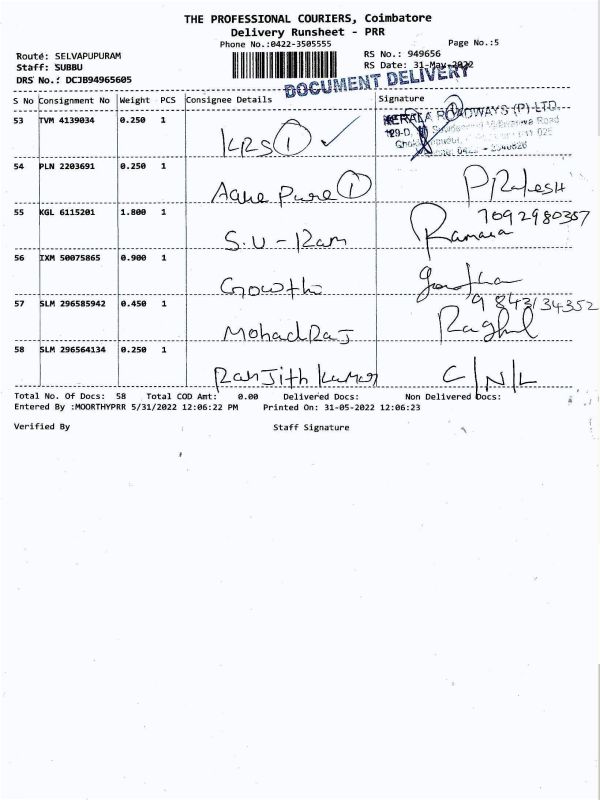 THE PROFESSIONAL COURIERS, Coimbatore
Delivery Runsheet - PRR
Phone No.:0422-3505555
Page No.:5
Route: SELVAPUPURAM
RS No.: 949656
Staff: SUBBU
RS Date: 31-May-2022
DRS No.: DCJB94965605
DOCUMENT DELIVERY
S No Consignment No Weight PCS Consignee Details Signature
53 TVM 4139034 0.250 1
KERALA ROADWAYS (P) LTD.
KRS 1 ✓
54 PLN 2203691 0.250 1
Aque Pure 1
55 KGL 6115201 1.800 1
7092980357
S.U - Ram
Ramana
56 IXM 50075865 0.900 1
Gowthi
57 SLM 296585942 0.450 1
9843134352
MohadRaj
Raghul
58 SLM 296564134 0.250 1
Ranjith Kumar C/N/L
Total No. Of Docs: 58 Total COD Amt: 0.00 Delivered Docs: Non Delivered Docs:
Entered By :MOORTHYPRR 5/31/2022 12:06:22 PM Printed On: 31-05-2022 12:06:23
Verified By Staff Signature